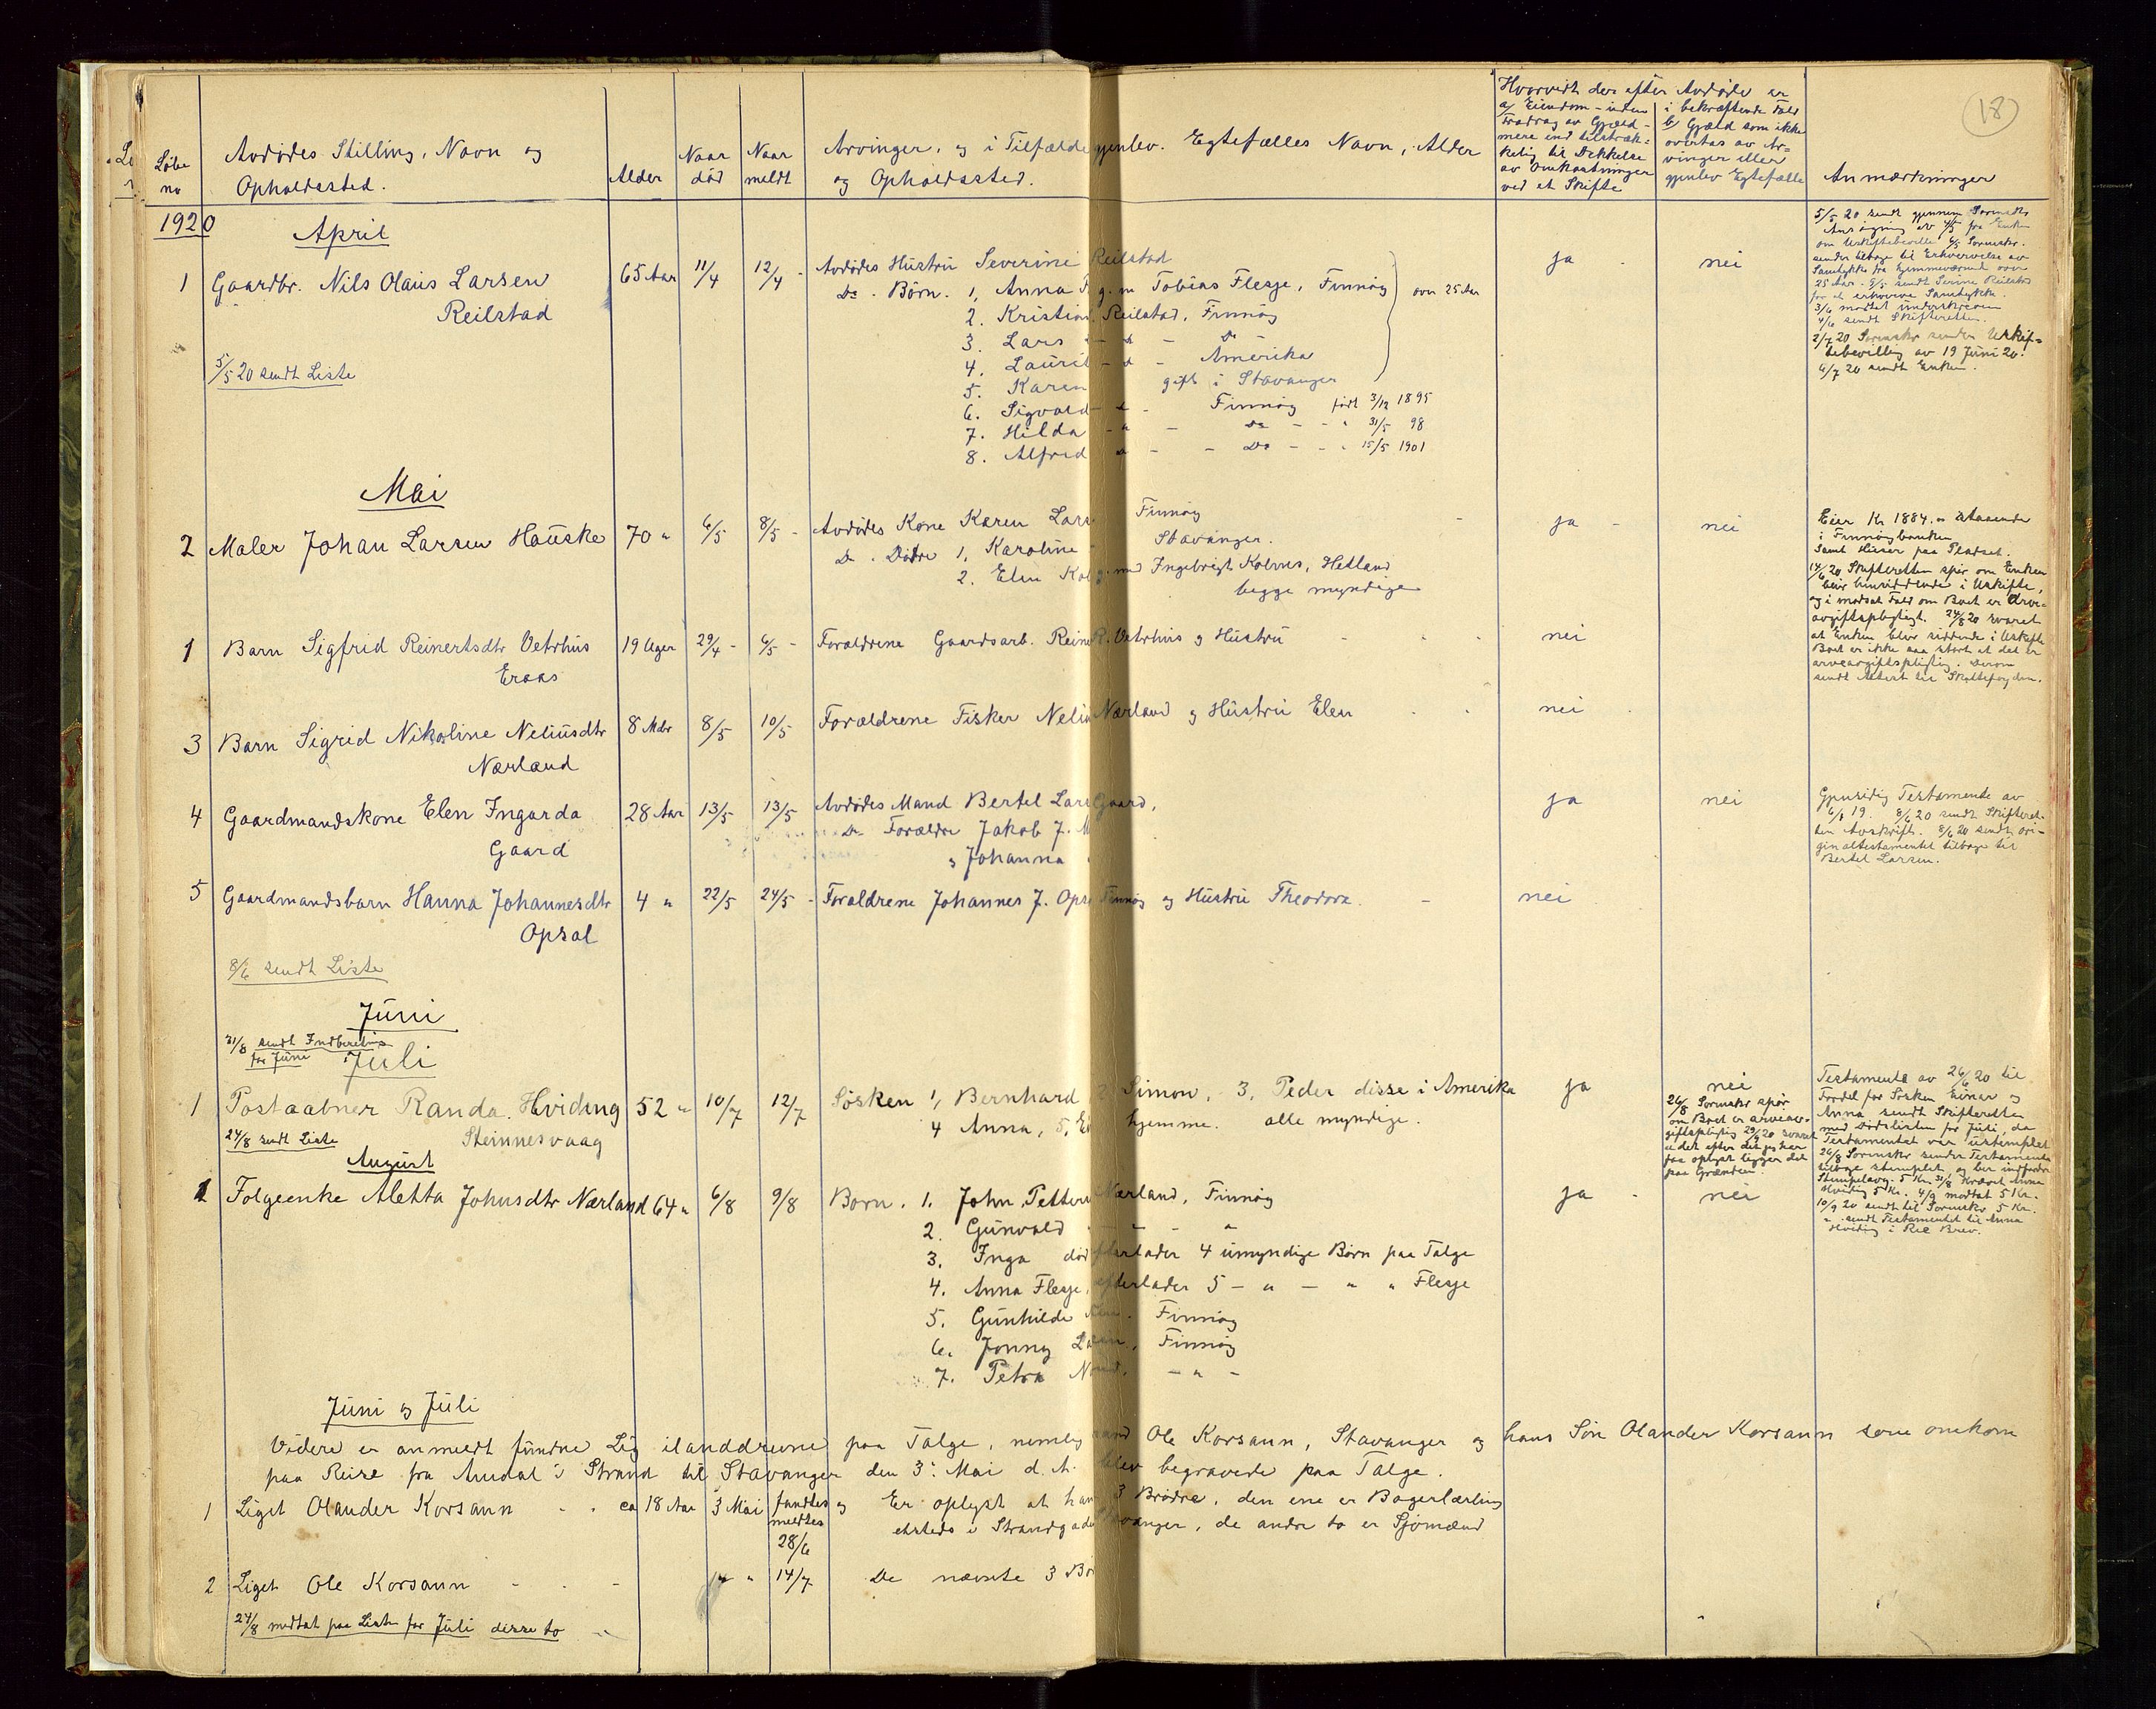 18
Løbe no
Avdødes Stilling, Navn og Opholdssted.
Alder
Naar død
Naar meldt
Arvinger, og i Tilfælde gjenlev. Egtefælles Navn, Alder og Opholdssted.
Hvorvidt der efter Avdøde er
a/ Eiendom - uden Fradrag av Gjæld - mere end tilstrækkelig til Dækkelse av Omkostninger ved et Skifte
i bekræftende Fald b/ Gjæld som ikke overtas av Arvinger eller gjenlev Egtefælle
Anmærkninger
1920
April
1 Gaardbr. Nils Olaus Larsen 65 Aar 11/4 12/4 - Avdødes Hustru Severine Reilstad ja - nei
Reilstad
Do. Børn. 1, Anna g. m Tobias Flesje, Finnøy
2. Kristian Reilstad, Finnøy
3. Lars - " - Do
4. Laurit - " - Amerika
over 25 Aar
5. Karen gift i Stavanger
6. Sigvald - " - Finnøy født 3/12 1895
7. Hilda - " - Do - - " 31/5 98
8. Alfred " - - Do - - " 15/5 1901
5/5 20 sendt Liste
5/5 20 sendt gjennem Sorenskr
Ansøgning av 4/5 fra Enken
om Uskiftebeville 6/5 Sorenskr.
sender tilbage til Erhvervelse av
Samtykke fra hjemmeværende over
25 Aar. 8/5 sendt Serine Reilstad
for at erhverve Samtykke.
3/6 modtat underskreven
4/6 sendt Skifteretten.
2/7 20 Sorenskr sender Uskif-
tebevilling av 19 Juni 20.
4/7 20 sendt Enken.
Mai
2 Maler Johan Larsen Hauske 70 " 6/5 8/5 - Avdødes Kone Karen Lars Finnøy - ja - nei
Do. Døtre 1, Karoline - Stavanger.
2. Elen g. med Ingebrigt Kolnes, Hetland
begge myndige
Eier Kr 1884.00 staaende
i Finnøybanken
samt Huser paa Pladset.
14/6 20 Skifteretten spør om Enken
blir hensiddende i Uskifte,
og i modsat Fald om Boet er Arve-
avgiftspligtigt. 24/8 20 svaret
at Enken blev siddende i Uskifte
Boet er ikke saa stort at det er
arveavgiftspligtig. Derom
sendt Attest til Skattefogden.
1 Barn Sigfrid Reinertsdtr Vetrhus 19 Uger 29/4 - 6/5 - Forældrene Gaardsarb. Reinert R. Vetrhus og Hustru nei
Eraas
3 Barn Sigrid Nikoline Neliusdtr 8 Mdr 8/5 10/5 Forældrene Fisker Nelius Nærland og Hustru Elen nei
Nærland
4 Gaardmandskone Elen Ingarda 28 Aar 13/5 13/5 Avdødes Mand Bertel Larsen Gaard, ja nei
Gaard
Do Forældre Jakob J.
og Johanna
Gjensidig Testamente av
6/8 19. 8/6 20 sendt Skifteret-
ten Avskrift. 8/6 20 sendt ori-
ginaltestamentet tilbage til
Bertel Larsen.
5 Gaardmandsbarn Hanna Johannesdtr 4 " 22/5 24/5 - Forældrene Johannes J. Opsal Finnøy og Hustru Theodora. - nei
Opsal
8/6 sendt Liste
Juni
31/8 sendt Indberetning
for Juni
Juli
1 Postaabner Randa Hviding 52 " 10/7 12/7 Søsken 1, Bernhard 2 Simon, 3, Peder disse i Amerika ja nei
Steinnesvaag
4 Anna, 5, hjemme. alle myndige.
24/8 sendt Liste
26/8 Sorenskr spør
om Boet er arveav-
giftspligtig 29/8 20 svaret
at det efter det jeg har
faa oplyst ligger det
paa Grænden.
Testamente av 26/6 20 til
Fordel for Søsken Einar og
Anna sendt Skifteretten
med Dødslisten for Juli, da
Testamentet var ustemplet
26/8 Sorenskr sender Testamente
tilbage stemplet og ber indfordre
Stempelavg. 5 Kr. 31/8 Krævet Anna
Hviding 5 Kr. 4/9 modtat 5 Kr.
10/9 20 sendt til Sorenskr 5 Kr.
" sendt Testamentet til Anna
Hviding i Rek Brev.
August
1 Følgeenke Alette Johnsdtr Nærland 64 " 6/8 9/8 Børn. 1. John, Petter Nærland, Finnøy ja - nei
2. Gunvald - " - "
3. Inga død efterlader 4 umyndige Børn paa Talge
4. Anna Flesje, efterlader 5 - " - " " Flesje
5. Gunhilde Finnøy
6. Jonny Finnøy
7. Petra - " -
Juni og Juli
Videre er anmeldt fundne Lig ilanddrevne paa Talge, nemlig Ole Korsann, Stavanger og hans Søn Olander Korsann som omkom
paa Reise fra Amdal i Strand til Stavanger den 3. Mai d. A. blev begravede paa Talge.
1 Liget Olander Korsann - - ca 18 Aar 3 Mai fundtes og meldtes 28/6 Er oplyst at han 3 Brødre, den ene er Bagerlærling
etsteds i Strandgaden Stavanger, de andre to er Sjømænd
2 Liget Ole Korsann - - - " " 14/7 De nævnte 3
24/8 medtat paa Listen for Juli disse to